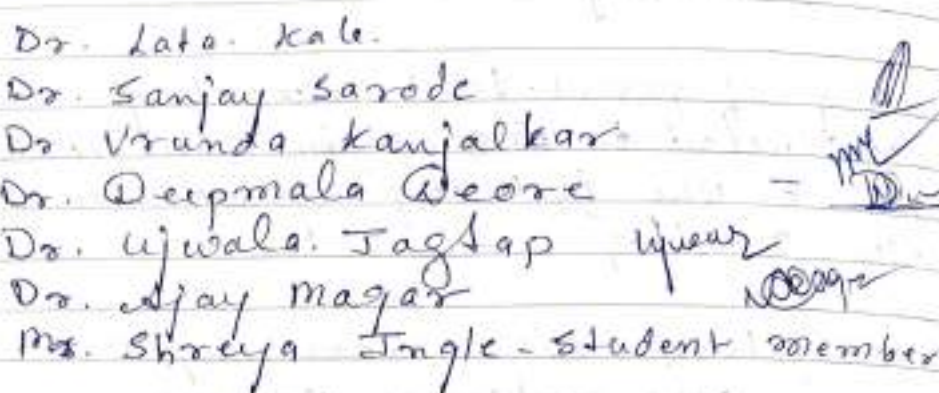 Dr. Lata. Kale.
Dr. Sanjay Sarode
Dr. Vrunda Kanjalkar
Dr. Deepmala Deore -
Dr. Ujwala. Jagtap
Dr. Ajay Magar
Ms. Shreya Ingle - Student member